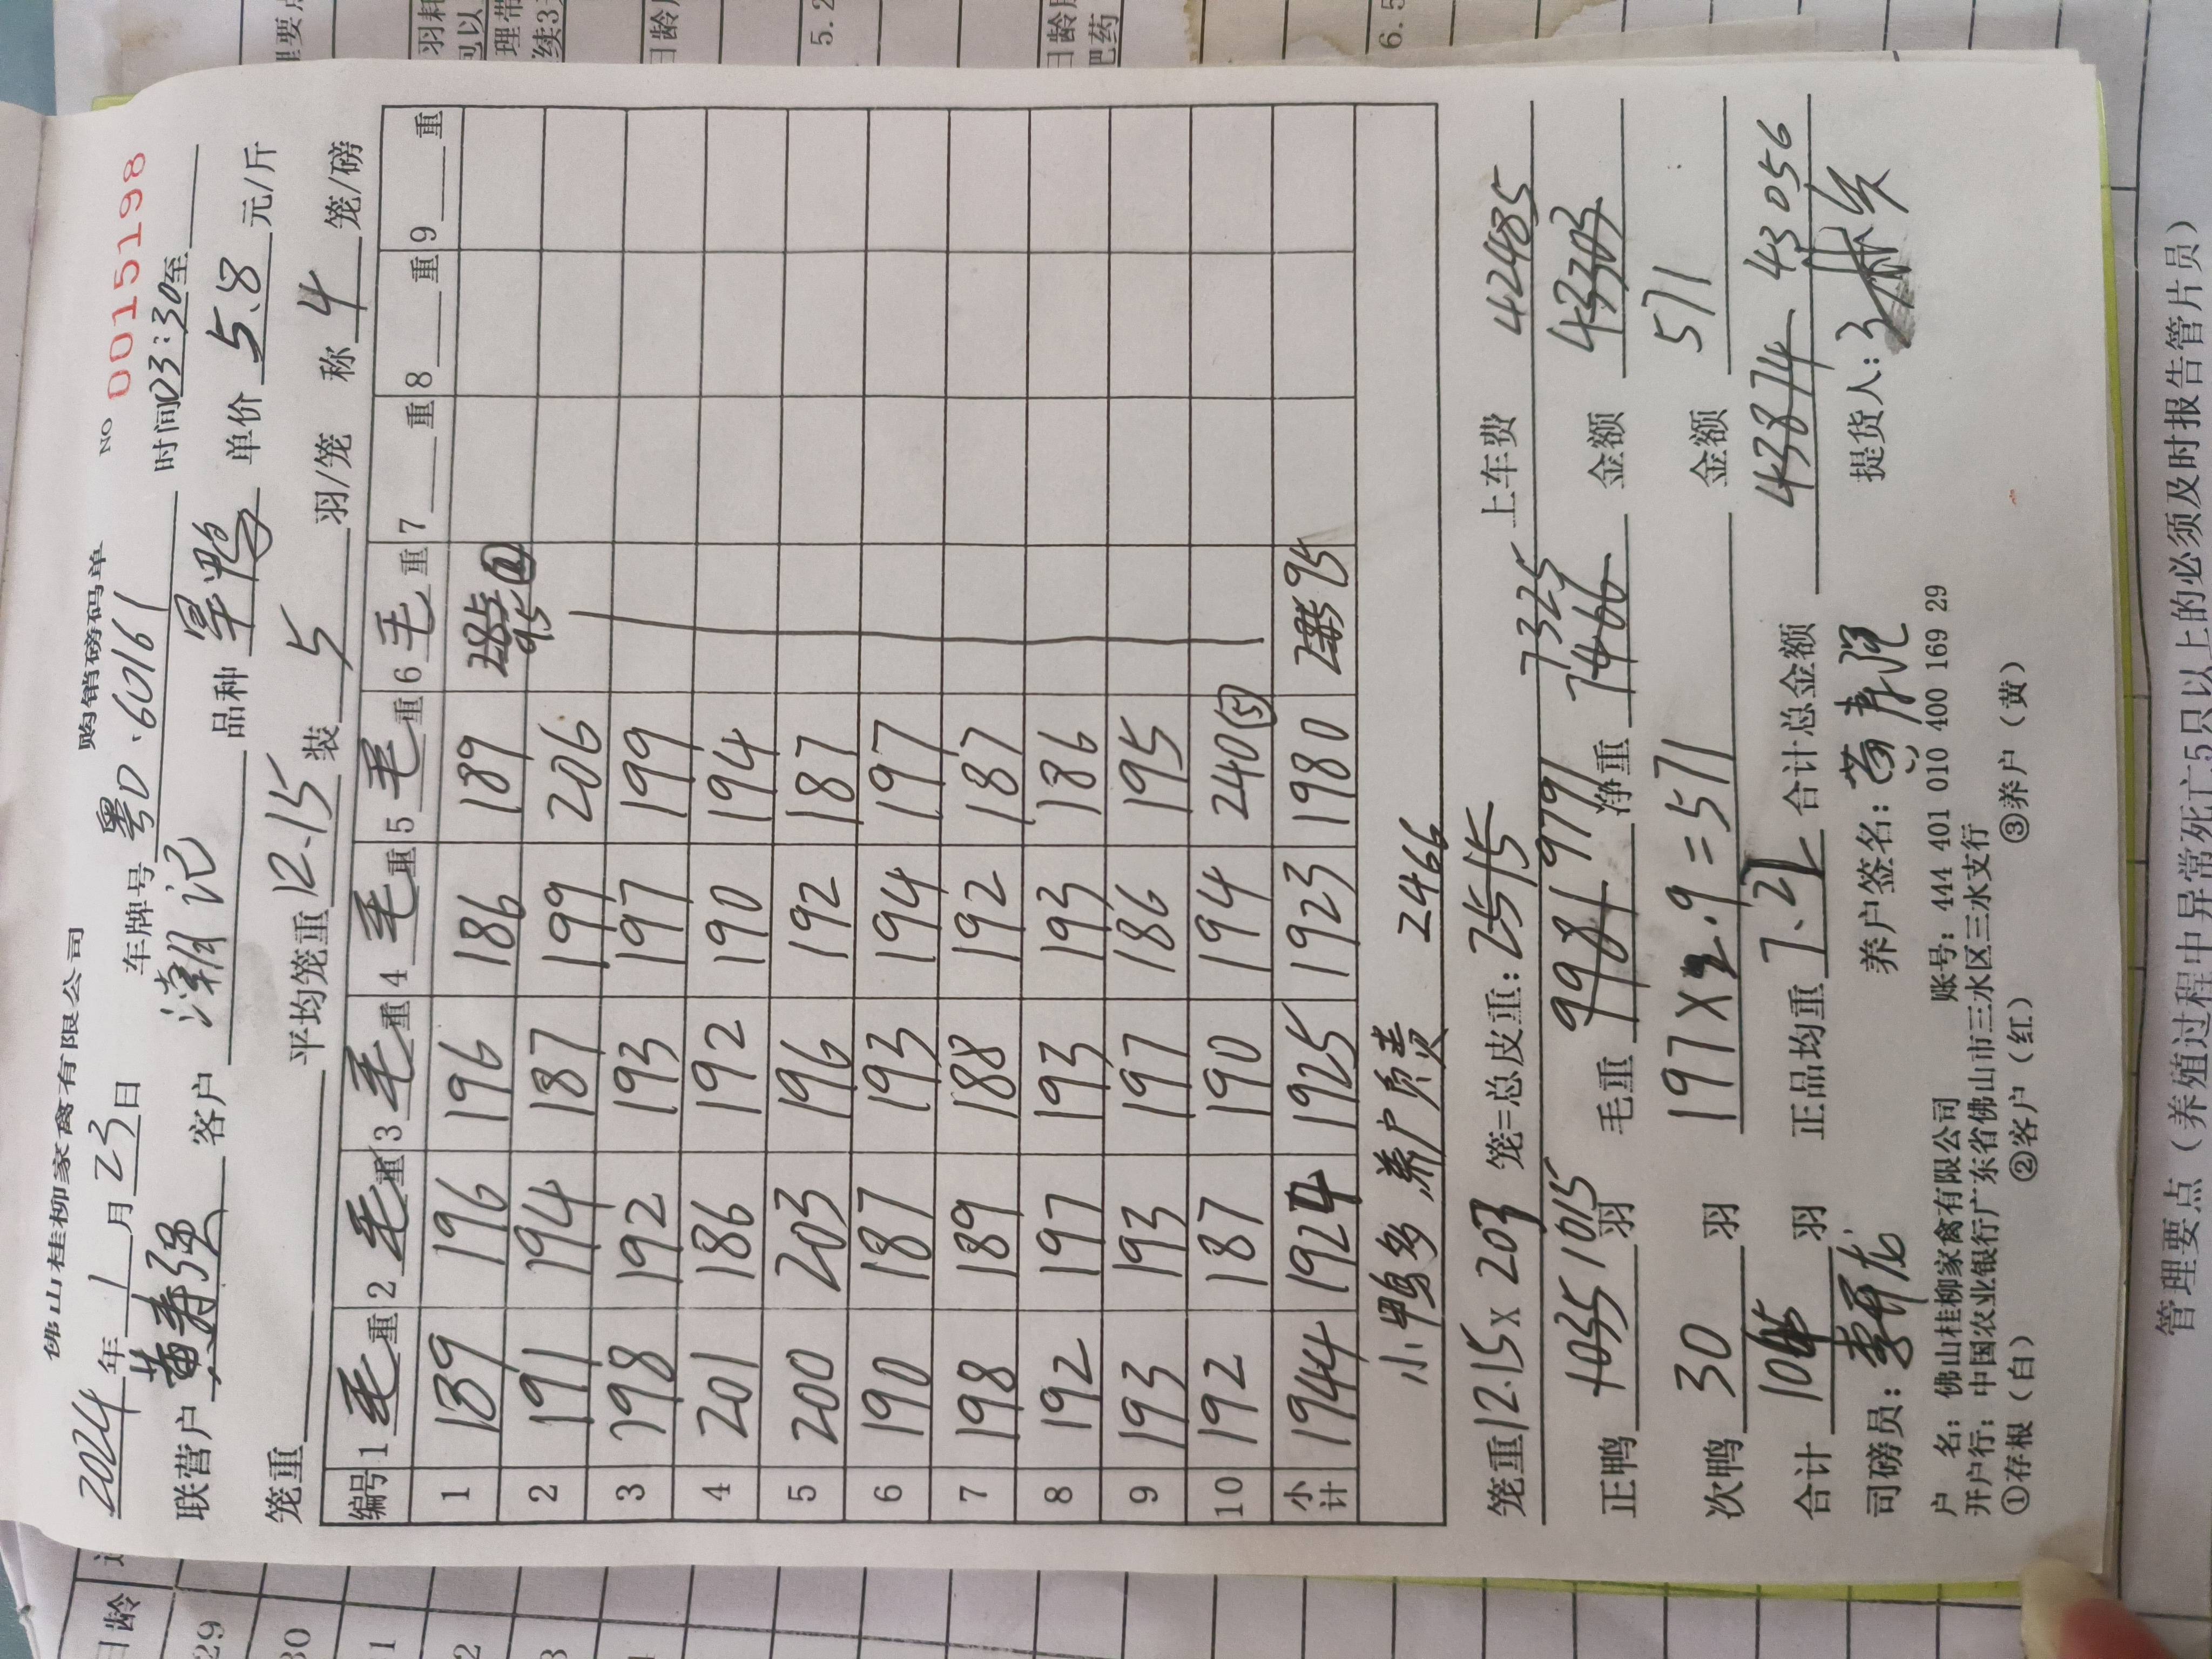 佛山桂柳家禽有限公司 购销磅码单 NO 0015198
2024年1月23日 车牌号粤D·60161 时间03:30至
联营户黄寿强 客户潮记 品种旱鸭 单价5.8元/斤
笼重 平均笼重12.15装5羽/笼 称4笼/磅
编号 1毛重 2毛重 3毛重 4毛重 5毛重 6毛重 7重 8重 9重
1 189 196 196 186 189 285 95②
2 191 194 187 199 206
3 198 192 193 197 199
4 201 186 192 190 194
5 200 203 196 192 187
6 190 187 193 194 197
7 198 189 188 192 187
8 192 197 193 193 186
9 193 193 197 186 195
10 192 187 190 194 240⑤
小计 1944 1924 1925 1923 1980 285 95
小鸭多 养户负责 2466
笼重12.15x203 笼=总皮重:2515 上车费 42485
正鸭1035 1015羽 毛重9981 9791 净重7466 7325 金额43303
次鸭30羽 197x2.9=571 金额571
合计1045羽 正品均重7.21 合计总金额43874 43056
司磅员: 养户签名: 提货人:
户 名:佛山桂柳家禽有限公司 账号:444 401 010 400 169 29
开户行:中国农业银行广东省佛山市三水区三水支行
①存根(白) ②客户(红) ③养户(黄)
管理要点(养殖过程中异常死亡5只以上的必须及时报告管片员)
日龄
29
30
5.2